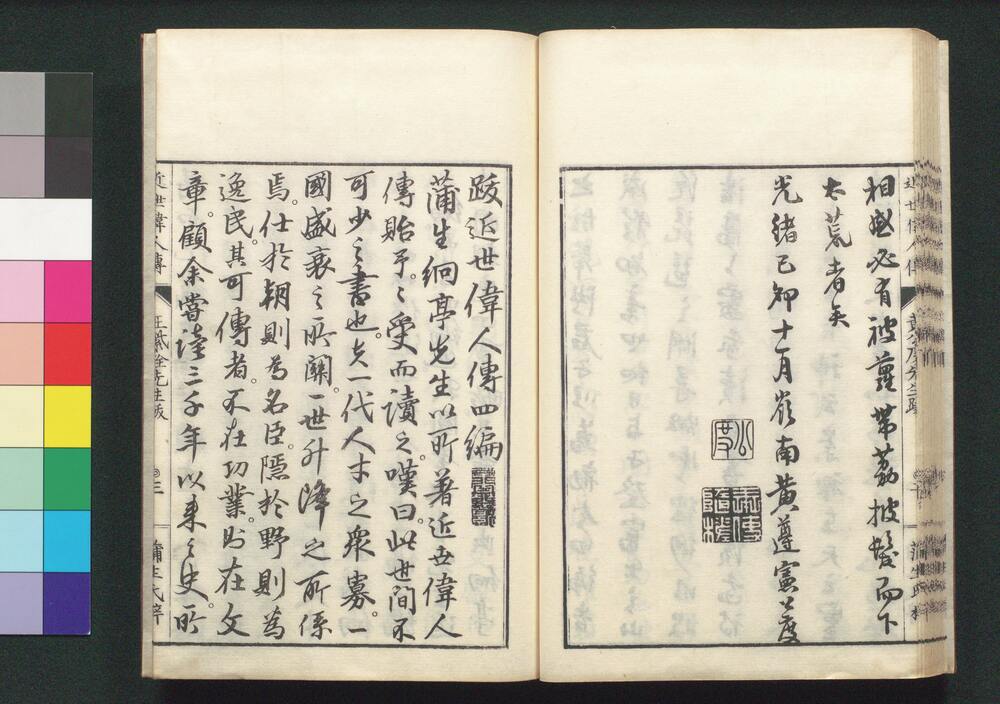 相感必有被薜帶荔披髮而下
太荒者矣
光緒己卯十月嶺南黃遵憲公度
公度
跋近世偉人傳四編
蒲生絅亭先生以所著近世偉人
傳貽予。々受而讀之。嘆曰。此世間不
可少之書也。夫一代人才之衆寡。一
國盛衰之所關。一世升降之所係
焉。仕於朝則為名臣。隱於野則為
逸民。其可傳者。不在功業。則在文
章。顧余嘗讀三千年以来之史。所
近世偉人傳